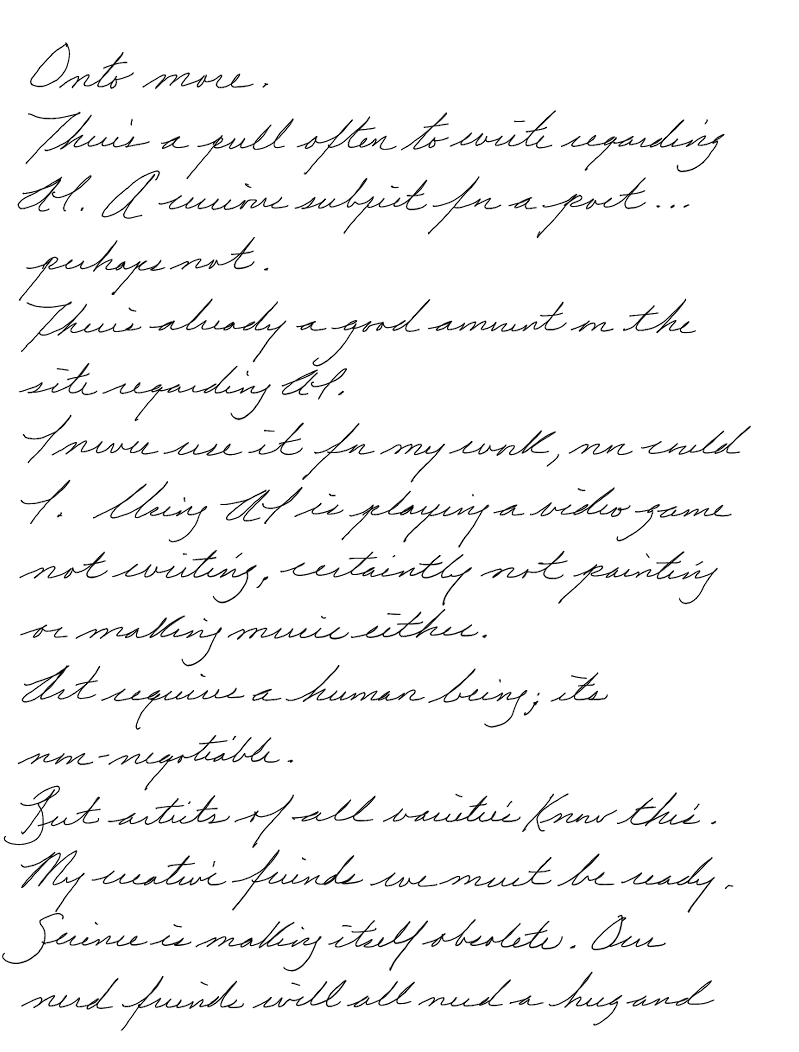 Onto more.
There's a pull often to write regarding
AI. A curious subject for a poet...
perhaps not.
There's already a good amount on the
site regarding AI.
I never use it for my work, nor could
I. Using AI is playing a video game
not writing, certaintly not painting
or making music either.
Art requires a human being; its
non-negotiable.
But artists of all varieties know this.
My creative friends we must be ready.
Science is making itself obsolete. Our
nerd friends will all need a hug and